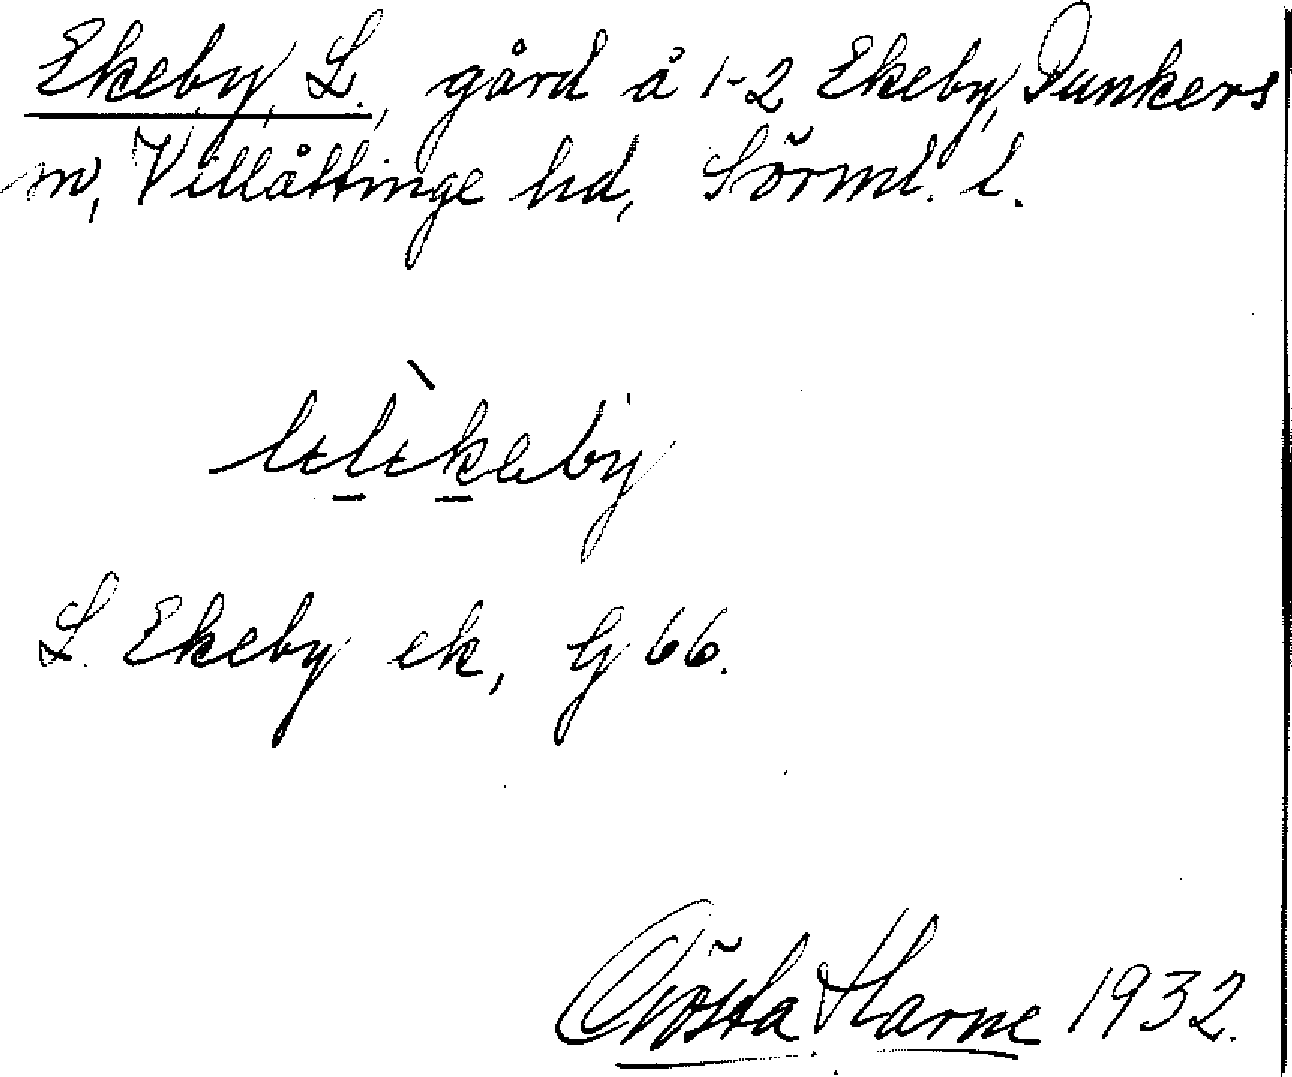 Ekeby, L., gård å 1-2 Ekeby, Dunkers
sn, Villåttinge hd, Sörml. l.
L. Ekeby ek, G 66.
Gösta Harne 1932.